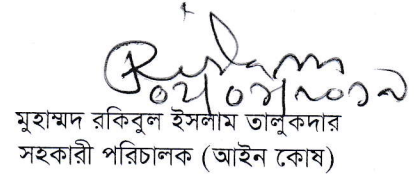 মুহাম্মদ রকিবুল ইসলাম তালুকদার
সহকারী পরিচালক (আইন কোষ)